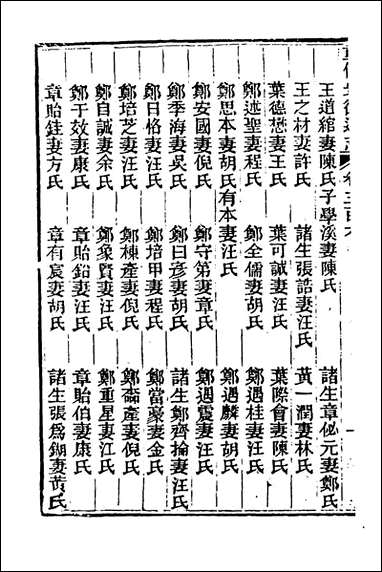 王道綰妻陳氏子學溪妻陳氏 諸生章佖元妻鄭氏
王之材妻許氏 諸生張誥妻汪氏 黃一潤妻林氏
葉德懋妻王氏 葉可誠妻汪氏 葉際會妻陳氏
鄭述聖妻程氏 鄭全儒妻胡氏 鄭遇桂妻汪氏
鄭思本妻胡氏有本妻汪氏 鄭遇麟妻胡氏
鄭安國妻倪氏 鄭守第妻章氏 鄭遇震妻汪氏
鄭季海妻吳氏 鄭曰彦妻胡氏 諸生鄭齊掄妻汪氏
鄭日恪妻汪氏 鄭培甲妻程氏 鄭當豪妻金氏
鄭培芝妻汪氏 鄭棟產妻倪氏 鄭喬產妻倪氏
鄭自誠妻余氏 鄭象賢妻汪氏 鄭重星妻江氏
鄭于效妻康氏 章貽鉛妻汪氏 章貽伯妻康氏
章貽銈妻方氏 章有宸妻胡氏 諸生張爲鍸妻黃氏